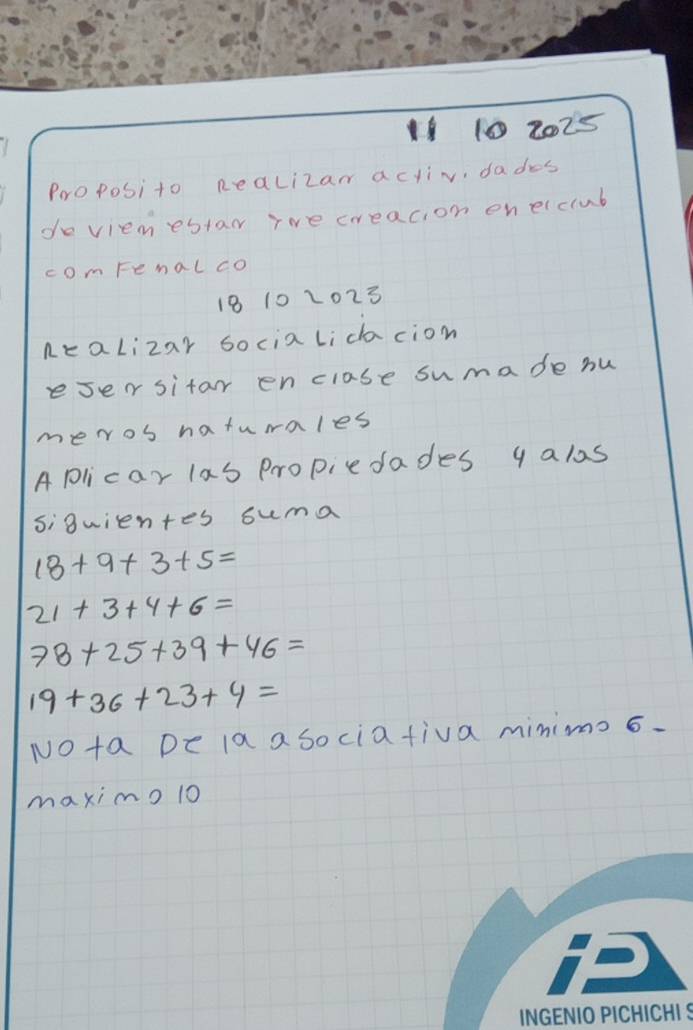 11 10 2025
Proposito Realizar actividades
de vienestar y recreacion en el club
comfenalco
18 10 2023
Realizar socialidacion
esersitar en clase suma de nu
meros naturales
Aplicar las Propiedades y a las
siguientes suma
18+9+3+5=
21+3+4+6=
78+25+39+46=
19+36+23+4=
Nota De la asociativa minimo 6-
maximo 10
iP
INGENIO PICHICHI S